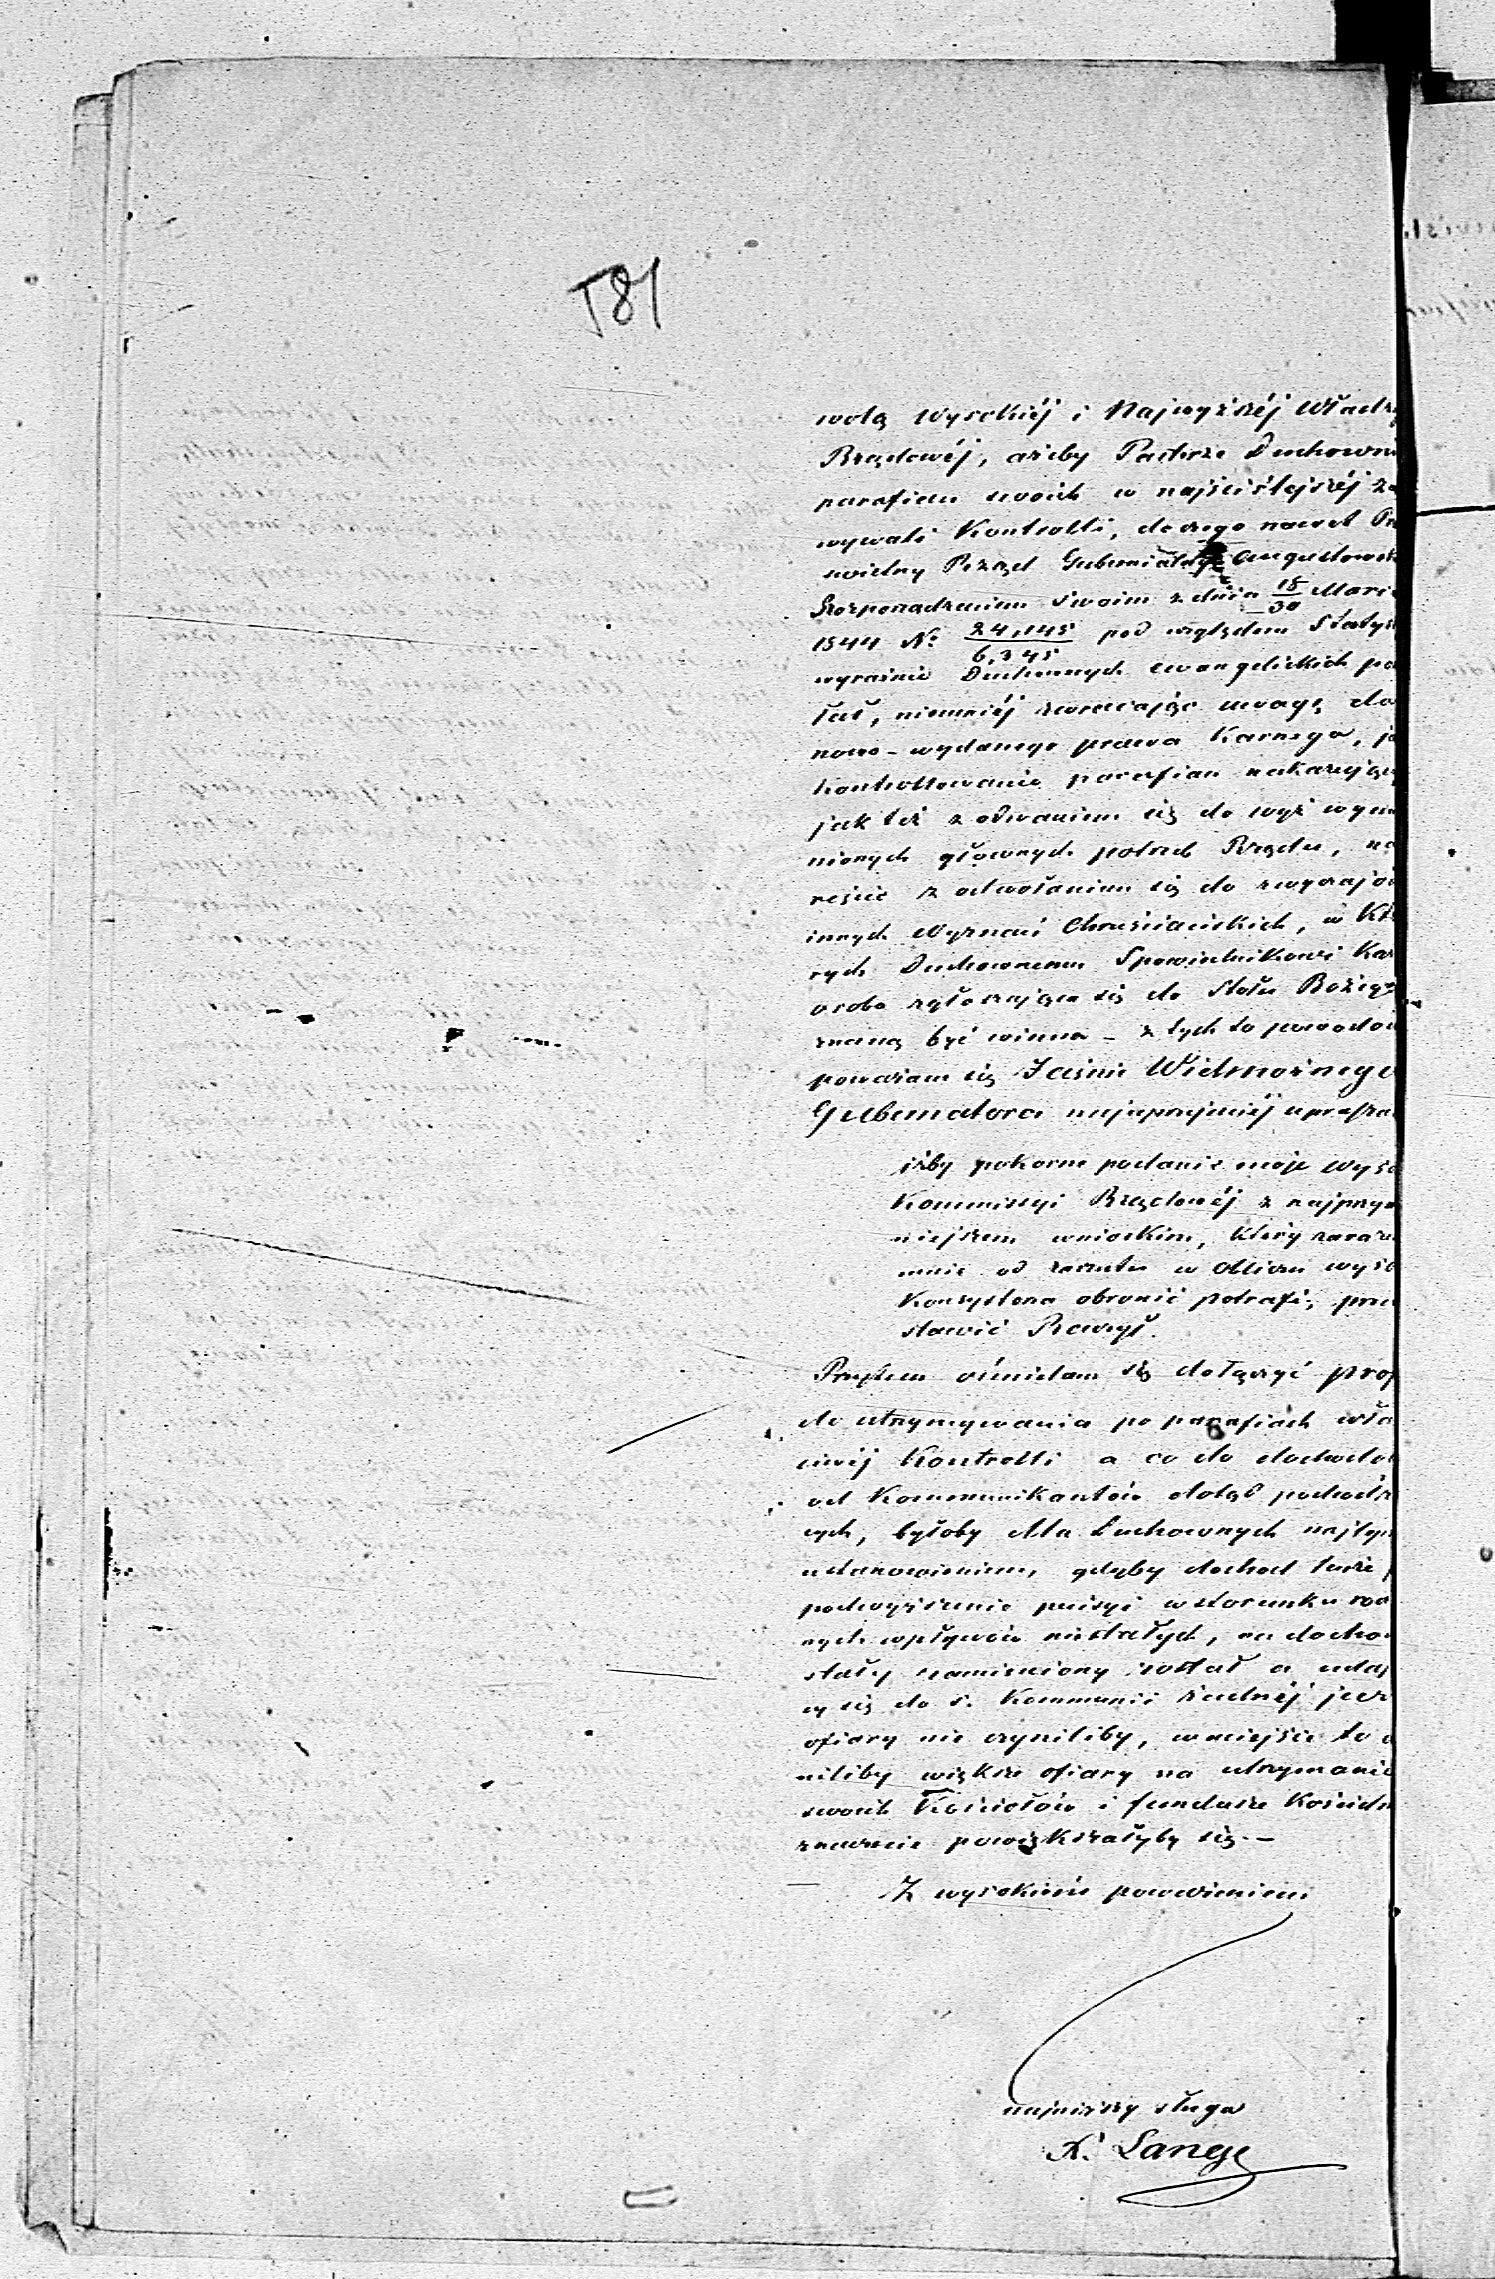 181
wolą Wysokiéj i Najwyższéj Władz
Rządowéj, ażeby Pasterze Duchown
parafian swoich w najściślejszéj za
wywali Kontrolli, do czego nawet Pr
świetny Rząd Gubernialny Augustowsk
Rozporządzeniem swoim z dnia 18/30 Marc
1844 No 24,145/6,345 pod względem Statys
wyraźnie Duchownych ewangelickich po
łał, niemniéj zwracając uwagę do
nowo-wydanego prawa Karnego, ja
kontrollowanie parafian nakazując
jak też z odwaniem się do wyż wym
nionych głównych potrzeb Rządu, na
reście z odwołaniem się do zwyczajów
innych Wyznań Chrześciańskich, w Kt
rych Duchownemu Spowiednikowi Każ
osoba zgłaszająca się do Stołu Bożego
znaną być winna – z tych to powodów
poważam się Jaśnie Wielmożnego
Gubernatora najuprzejmiéj upraszać
iżby pokorne podanie moje wyso
Kommissyi Rządowéj z najprzy
niejszem wnioskiem, który zaraz
mnie od zarzutu w obliczu wyso
Konsystorza obronić potrafi, prze
stawić Raczył.
Przytem ośmielam się dołączyć proj
do utrzymywania po parafiach wła
ciwéj Kontrolli a co do dochodó
od Kommunikantów dotąd pochodz
cych, byłoby dla Duchownych
ustanowieniem, gdyby dochod także
podwyższenie pensyi w stosunku
nych wpływów niestałych, na docho
stały zamieniony został a udaj
cy się do ś. Kommunii żadnéj
ofiary nie czyniliby, w miejsce to
niliby większe ofiary na utrzymanie
swoich Kościołów i fundusze Kościel
znacznie powiększałyby się.–
Z wysokiem poważeniem
najniższy sługa
X. Lange